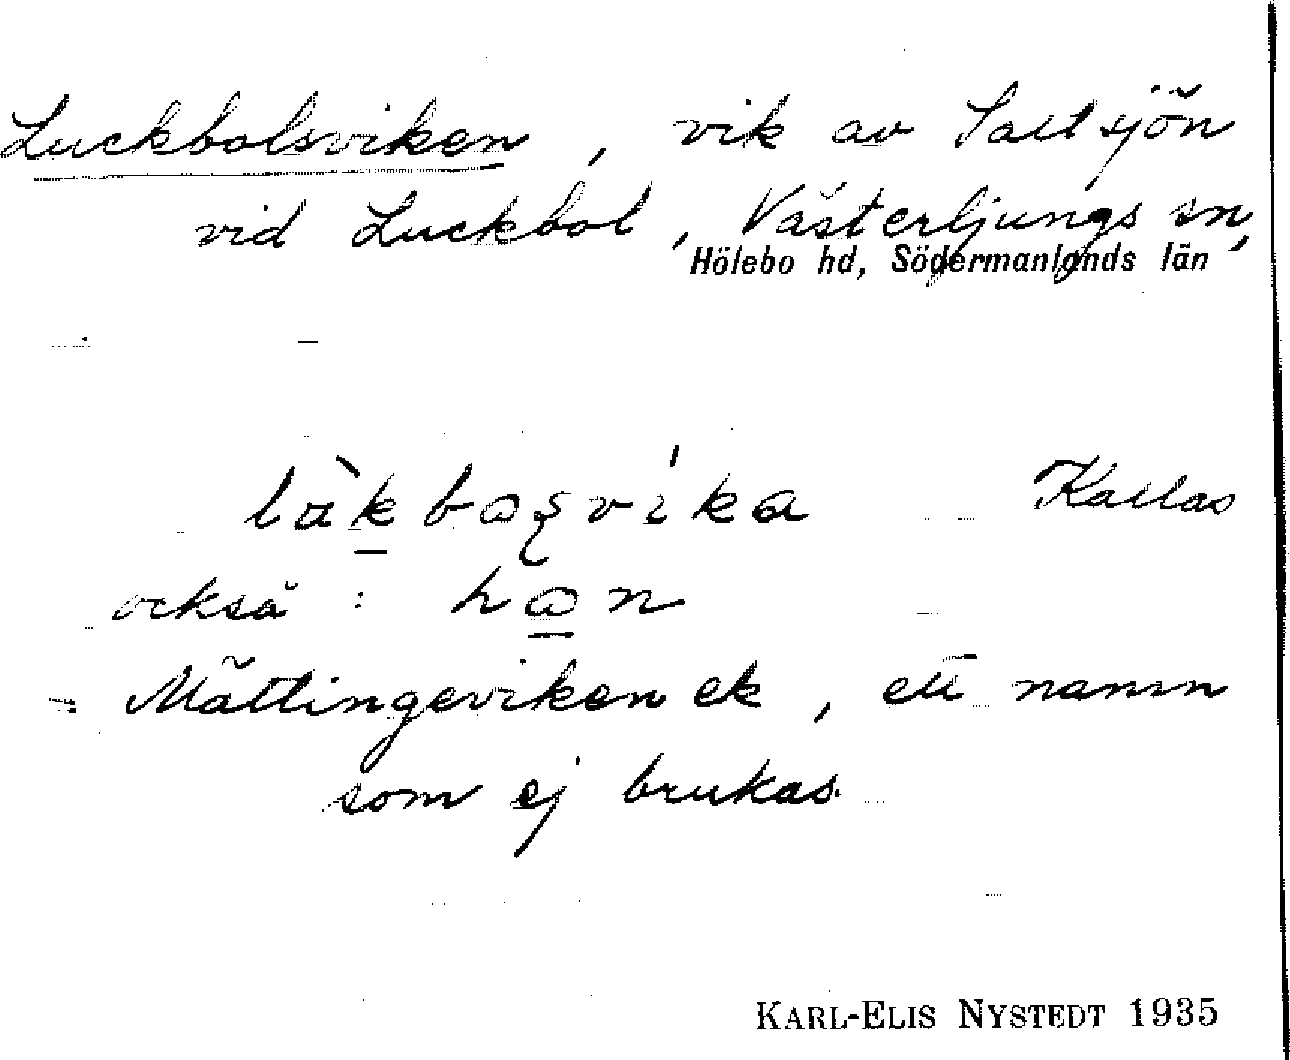 Luckbolsviken, vik av Saltsjön
vid Luckbol, Västerljungs sn,
Hölebo hd, Södermanlands län
Kallas
också:
= Mättingeviken ek, ett namn
som ej brukas.
KARL-ELIS NYSTEDT 1935